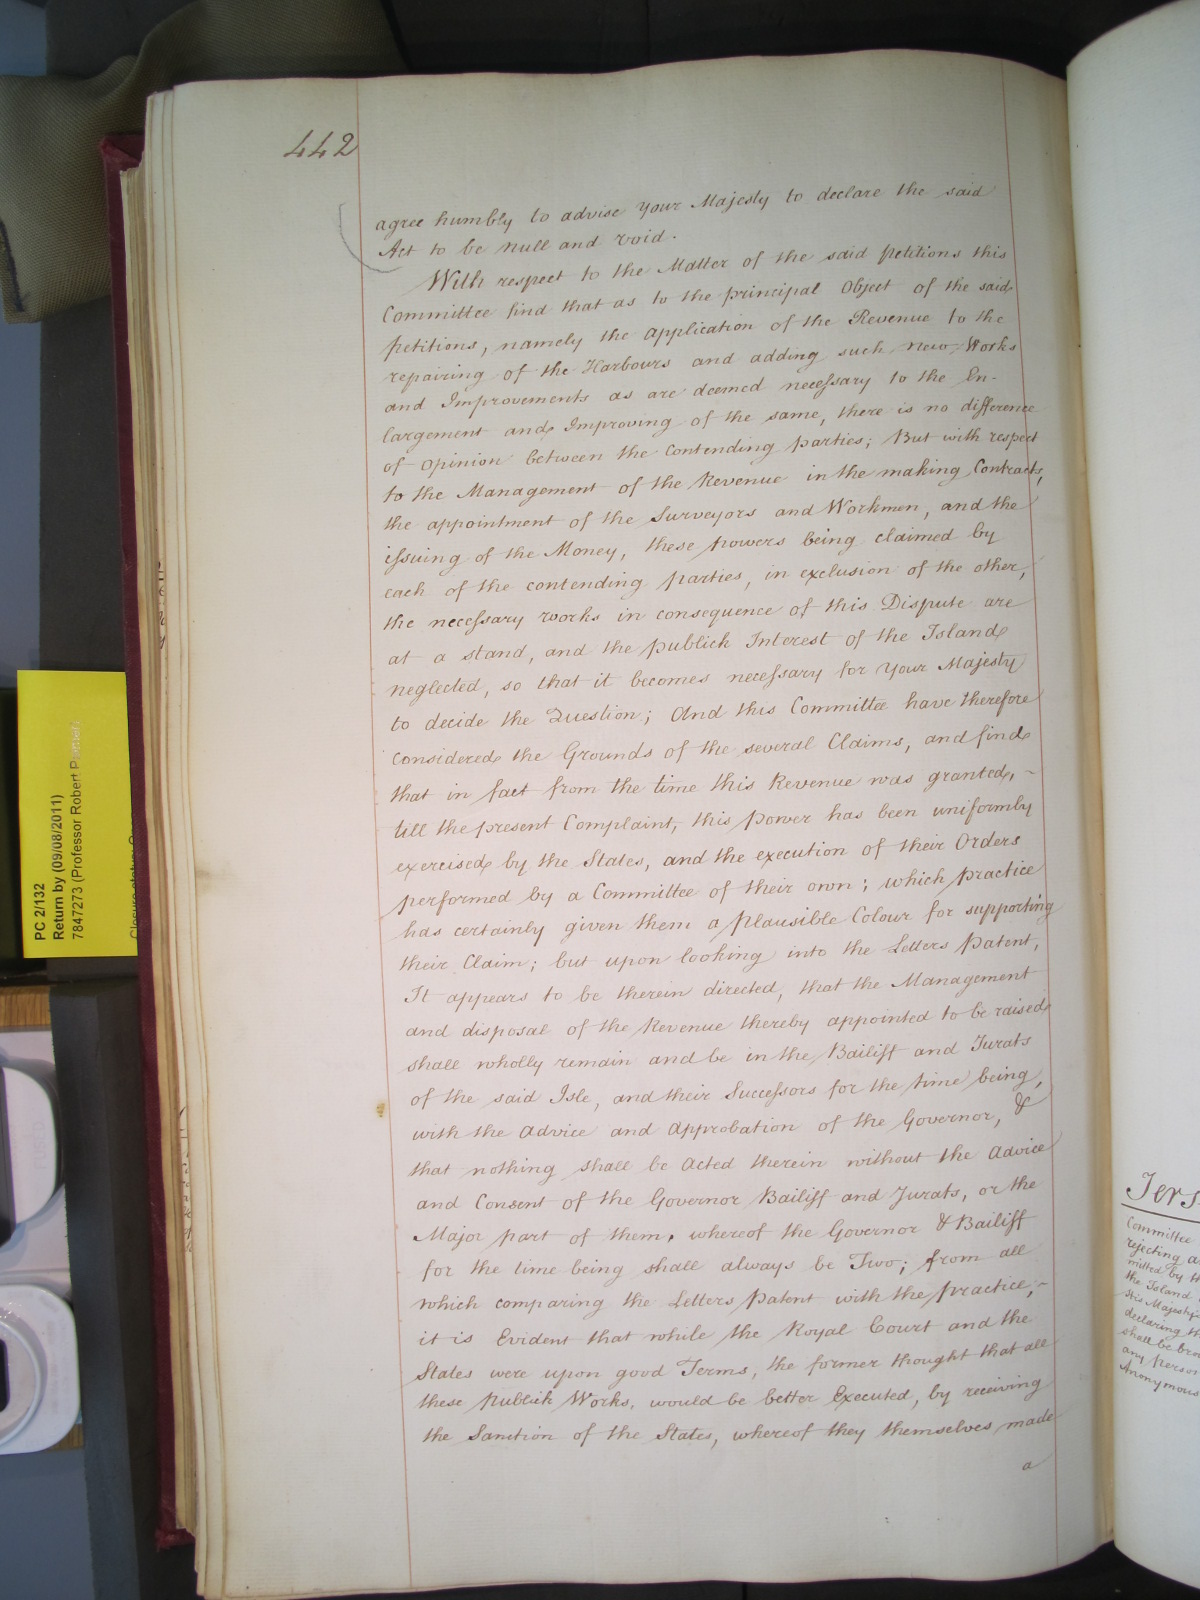 442
agree humbly to advise Your Majesty to declare the said
Act to be Null and Void.
With respect to the Matter of the said Petitions this
Committee find that as to the Principal Object of the said
Petitions, namely the Application of the Revenue to the
repairing of the Harbours and adding such new Works
and Improvements as are deemed necessary to the En-
largement and Improving of the same, there is no difference
of Opinion between the Contending Parties; But with respect
to the Management of the Revenue in the making Contracts,
the appointment of the Surveyors and Workmen, and the
issuing of the Money, these Powers being claimed by
each of the contending Parties, in exclusion of the other,
the necessary works in consequence of this Dispute are
at a stand, and the publick Interest of the Island
neglected, so that it becomes necessary for Your Majesty
to decide the Question; And this Committee have therefore
considered the Grounds of the several Claims, and find
that in fact from the time this Revenue was granted,
till the present Complaint, this Power has been uniformly
exercised by the States, and the execution of their Orders
performed by a Committee of their own; which Practice
has certainly given them a plausible Colour for supporting
their Claim; but upon looking into the Letters Patent,
It appears to be therein directed, that the Management
and disposal of the Revenue thereby appointed to be raised
shall wholly remain and be in the Bailiff and Jurats
of the said Isle, and their Successors for the time being,
with the Advice and Approbation of the Governor, &
that nothing shall be Acted therein without the Advice
and Consent of the Governor Bailiff and Jurats, or the
Major part of them, whereof the Governor & Bailiff
for the time being shall always be Two; from all
which comparing the Letters Patent with the Practice,
it is Evident that while the Royal Court and the
States were upon good Terms, the former thought that all
these Publick Works, would be better Executed, by receiving
the Sanction of the States, whereof they themselves made
a
PC 2/132
Return by (09/08/2011)
7847273 (Professor Robert
Committee
rejecting
mitted by
the Island
His Majesty
declaring
shall be
any person
Anonymous